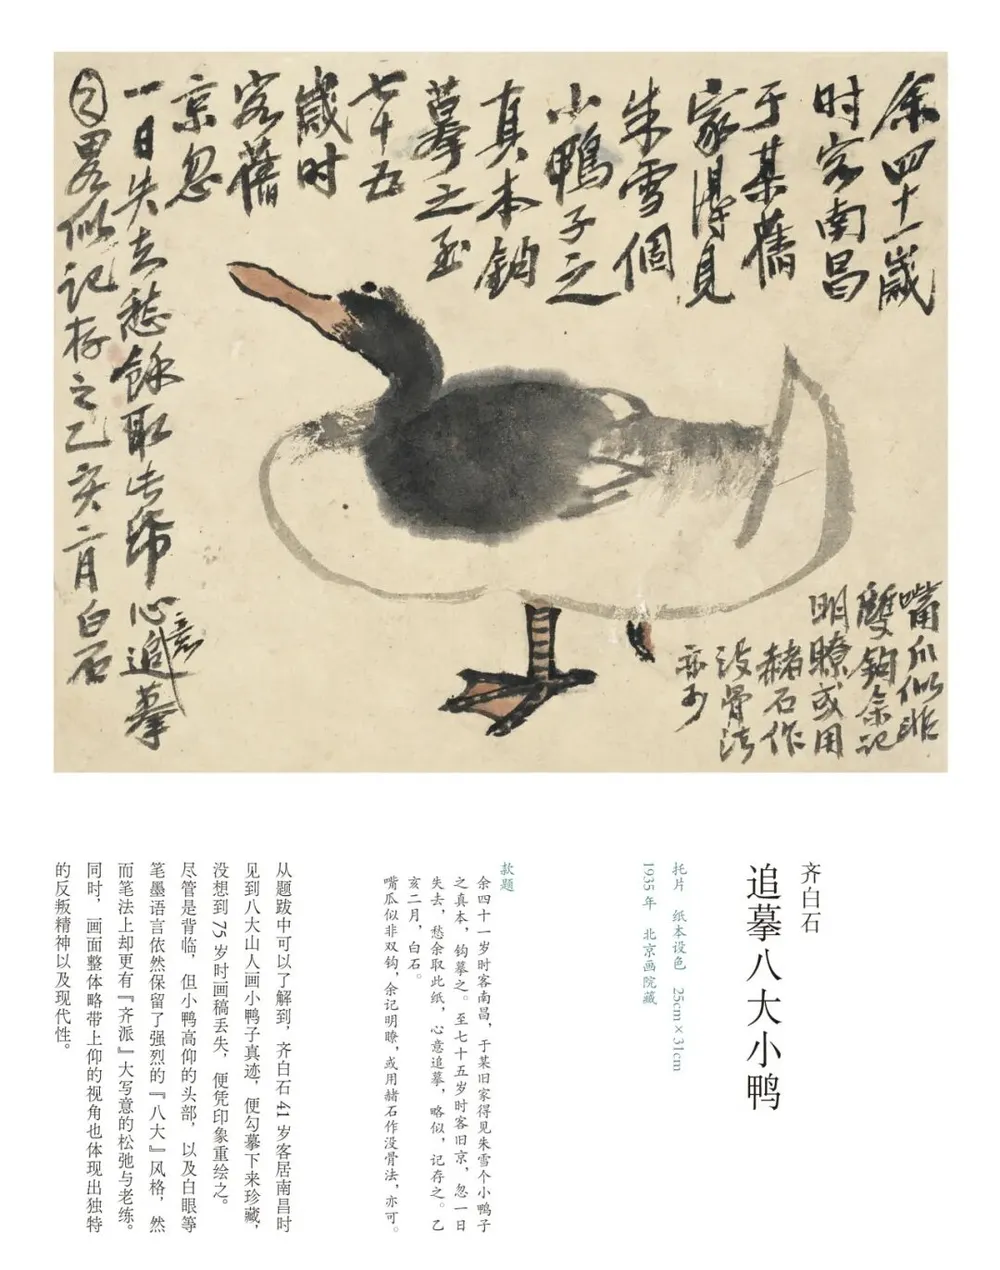 余四十一歲
时客南昌
于某舊
家得見
朱雪個
小鴨子之
真本鈎
摹之至
七十五
歲时
客舊
京忽
一日失去愁余取此帋心意追摹
畧似記存之乙亥二月白石
嘴爪似非
雙鈎余記
明瞭或用
赭石作
没骨法
亦可
齐白石
追摹八大小鸭
托片 纸本设色 25cm×31cm
1935 年 北京画院藏
款题
余四十一岁时客南昌，于某旧家得见朱雪个小鸭子
之真本，钩摹之。至七十五岁时客旧京，忽一日
失去，愁余取此纸，心意追摹，略似，记存之。乙
亥二月，白石。
嘴瓜似非双钩，余记明瞭，或用赭石作没骨法，亦可。
从题跋中可以了解到，齐白石 41 岁客居南昌时
见到八大山人画小鸭子真迹，便勾摹下来珍藏，
没想到 75 岁时画稿丢失，便凭印象重绘之。
尽管是背临，但小鸭高仰的头部，以及白眼等
笔墨语言依然保留了强烈的『八大』风格，然
而笔法上却更有『齐派』大写意的松弛与老练。
同时，画面整体略带上仰的视角也体现出独特
的反叛精神以及现代性。